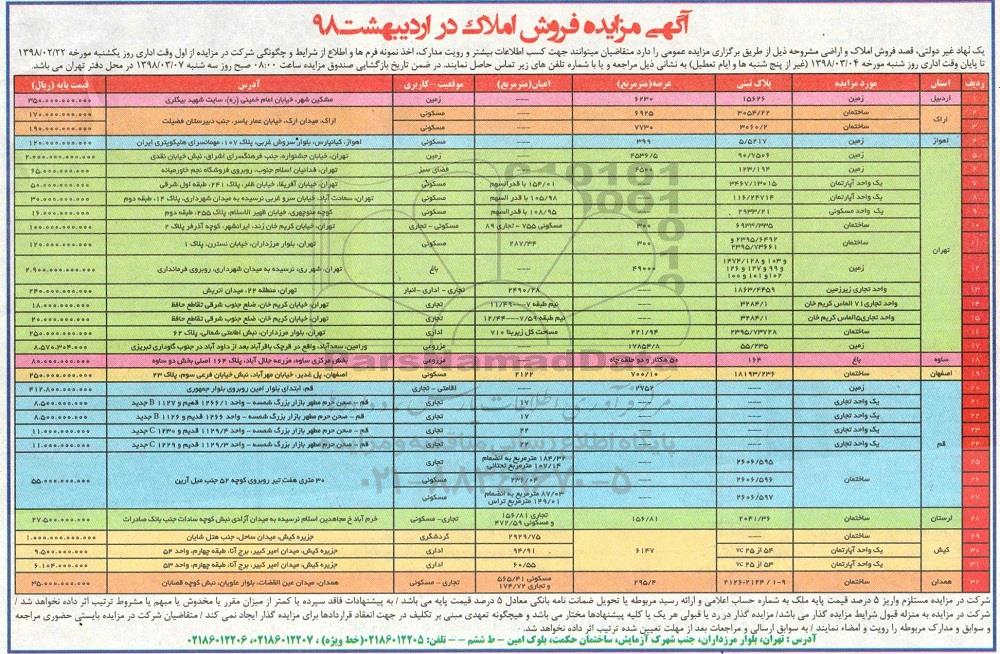 آگهی مزایده فروش املاک در اردیبهشت ۹۸
یک نهاد غیر دولتی، قصد فروش املاک و اراضی مشروحه ذیل از طریق برگزاری مزایده عمومی را دارد متقاضیان میتوانند جهت کسب اطلاعات بیشتر و رویت مدارک، اخذ نمونه فرم ها و اطلاع از شرایط و چگونگی شرکت در مزایده از اول وقت اداری روز یکشنبه مورخه ۱۳۹۸/۰۲/۲۲
تا پایان وقت اداری روز شنبه مورخه ۱۳۹۸/۰۳/۰۴ (غیر از پنج شنبه ها و ایام تعطیل) به نشانی ذیل مراجعه و یا با شماره تلفن های زیر تماس حاصل نمایند. در ضمن تاریخ بازگشایی صندوق مزایده ساعت ۰۸:۰۰ صبح روز سه شنبه ۱۳۹۸/۰۳/۰۷ در محل دفتر تهران می باشد.
ردیف استان مورد مزایده پلاک ثبتی عرصه(مترمربع) اعیان(مترمربع) موقعیت - کاربری آدرس قیمت پایه (ریال)
۱ اردبیل زمین ۱۵۶۲۶ ۶۲۳۰ --- زمین مشکین شهر، خیابان امام خمینی (ره)، سایت شهید بیگلری ۳۵۰.۰۰۰.۰۰۰.۰۰۰
۲ اراک ساختمان ۳۰۵۴/۲۲ ۶۹۲۵ --- مسکونی اراک، میدان ارک، خیابان عمار یاسر، جنب دبیرستان فضیلت ۱۷۰.۰۰۰.۰۰۰.۰۰۰
۳ ساختمان ۳۰۶۰/۲ ۷۷۳۰ --- مسکونی ۱۹۰.۰۰۰.۰۰۰.۰۰۰
۴ اهواز زمین ۵/۵۴۱۷ ۳۹۹ --- مسکونی اهواز، کیانپارس، بلوار سروش غربی، پلاک ۱۰۷، مهمانسرای هلیکوپتری ایران ۱۲۰.۰۰۰.۰۰۰.۰۰۰
۵ تهران زمین ۹۰/۷۵۰۶ ۴۵۳۶/۵ --- زمین تهران، خیابان جشنواره، جنب فرهنگسرای اشراق، نبش خیابان نقدی ۲.۰۰۰.۰۰۰.۰۰۰.۰۰۰
۶ زمین ۱۲۳/۱۹۴ ۶۵۰۰ --- فضای سبز تهران، فدائیان اسلام جنوب، روبروی فروشگاه نجم خاورمیانه ۶۵.۰۰۰.۰۰۰.۰۰۰
۷ یک واحد آپارتمان ۳۴۶۷/۱۳۰۱۵ --- ۱۵۴/۰۱ با قدرالسهم مسکونی تهران، خیابان آفریقا، خیابان ظفر، پلاک ۲۴۱، طبقه اول شرقی ۵۰.۰۰۰.۰۰۰.۰۰۰
۸ یک واحد آپارتمان ۱۱۶/۲۴۷۱۴ --- ۱۰۵/۹۸ با قدر السهم مسکونی تهران، سعادت آباد، خیابان سرو غربی نرسیده به میدان شهرداری، پلاک ۱۴، طبقه دوم ۳۰.۰۰۰.۰۰۰.۰۰۰
۹ یک واحد مسکونی ۲۹۳۳/۲۱ --- ۱۰۸/۹۵ با قدرالسهم مسکونی کوچه منوچهری، خیابان ظهیر الاسلام، پلاک ۲۵۵، طبقه دوم ۱۶.۰۰۰.۰۰۰.۰۰۰
۱۰ ساختمان ۶۹۳۳/۳۳۵ ۳۰۰ مسکونی ۷۵۵ - تجاری ۸۹ مسکونی - تجاری تهران، خیابان کریم خان زند، ایرانشهر، کوچه آذرفر پلاک ۲ ۱۰۰.۰۰۰.۰۰۰.۰۰۰
۱۱ ساختمان ۲۳۹۵/۶۴۹۲ و ۲۳۹۵/۷۳۶۶۱ ۳۰۰ ۲۸۷/۳۴ مسکونی تهران، بلوار مرزداران، خیابان نسترن، پلاک ۱ ۱۲۰.۰۰۰.۰۰۰.۰۰۰
۱۲ زمین ۱۰۳ و ۱۲۸/۱۴۷۴ و ۹۹ و ۱۲۷ و ۱۲۶ و ۱۰۰ و ۱۰۱ و ۱۰۲ ۴۹۰۰۰ --- باغ تهران، شهر ری، نرسیده به میدان شهرداری، روبروی فرمانداری ۲.۹۰۰.۰۰۰.۰۰۰.۰۰۰
۱۳ واحد تجاری زیرزمین ۱۸۶۳/۴۴۵۹ --- ۲۴۹۰/۲۸ تجاری - اداری -انبار تهران، منطقه ۲۲، میدان اتریش ۲۴۰.۰۰۰.۰۰۰.۰۰۰
۱۴ واحد تجاری ۷۱ الماس کریم خان ۳۲۸۴/۱ --- نیم طبقه ۷---۱۱/۴۹ تجاری تهران، خیابان کریم خان، ضلع جنوب شرقی تقاطع حافظ ۱۸.۰۰۰.۰۰۰.۰۰۰
۱۵ واحد تجاری۷۵الماس کریم خان ۳۲۸۴/۱ --- نیم طبقه ۷/۵۹---۱۲/۴۴ تجاری تهران، خیابان کریم خان، ضلع جنوب شرقی تقاطع حافظ ۲۰.۰۰۰.۰۰۰.۰۰۰
۱۶ ساختمان ۲۳۹۵/۷۳۷۲۸ ۲۲۱/۹۴ مساحت کل زیربنا ۷۱۰ اداری تهران، بلوار مرزداران، نبش اطاعتی شمالی، پلاک ۶۲ ۲۵۰.۰۰۰.۰۰۰.۰۰۰
۱۷ زمین ۵۵/۲۳۵ ۱۷۸۵۴/۸ --- مزروعی ورامین، سعدآباد، واقع در قرچک باقرآباد بعد از داود آباد در جنوب گاوداری تبریزی ۸.۵۷۰.۳۰۴.۰۰۰
۱۸ ساوه باغ ۱۶۴ ۵۰ هکتار و دو حلقه چاه --- مزروعی بخش مرکزی ساوه، مزرعه جلال آباد، پلاک ۱۶۴ اصلی بخش دو ساوه ۸۰.۰۰۰.۰۰۰.۰۰۰
۱۹ اصفهان ساختمان ۱۸۱۹۳/۲۳۶ ۷۰۰/۱۰ ۲۱۲۲ مسکونی اصفهان، پل غدیر، خیابان مهرآباد، نبش خیابان فرعی سوم، پلاک ۲۳ ۲۵۰.۰۰۰.۰۰۰.۰۰۰
۲۰ قم زمین --- ۲۷۵۲ --- اقامتی - تجاری قم، ابتدای بلوار امین روبروی بلوار جمهوری ۴۱۲.۸۰۰.۰۰۰.۰۰۰
۲۱ یک واحد تجاری --- --- ۱۷ تجاری قم - صحن حرم مطهر بازار بزرگ شمسه - واحد ۱۲۶۶/۱ قدیم و B ۱۱۲۷ جدید ۸.۵۰۰.۰۰۰.۰۰۰
۲۲ یک واحد تجاری --- --- ۱۷ تجاری قم - صحن حرم مطهر بازار بزرگ شمسه - واحد ۱۲۶۶ قدیم و B ۱۱۲۶ جدید ۸.۵۰۰.۰۰۰.۰۰۰
۲۳ یک واحد تجاری --- --- ۲۲ تجاری قم - صحن حرم مطهر بازار بزرگ شمسه - واحد ۱۱۲۹/۴ قدیم و C ۱۲۳۰ جدید ۱۱.۰۰۰.۰۰۰.۰۰۰
۲۴ یک واحد تجاری --- --- ۲۲ تجاری قم - صحن حرم مطهر بازار بزرگ شمسه - واحد ۱۱۲۹/۳ قدیم و C ۱۲۲۹ جدید ۱۱.۰۰۰.۰۰۰.۰۰۰
۲۵ ساختمان ۲۶۰۶/۵۹۵ --- ۱۸۴/۳۲ مترمربع به انضمام ۱۰۷/۱۴ مترمربع تحتانی تجاری ۳۰ متری هفت تیر روبروی کوچه ۵۲ جنب مبل آرین ۵۵.۰۰۰.۰۰۰.۰۰۰
۲۶ ۲۶۰۶/۵۹۶ --- ۲۳۶/۰۲ مسکونی
۲۷ ۲۶۰۶/۵۹۷ --- ۸۷/۰۳ مترمربع به انضمام ۱۴۹/۰۱ مترمربع تراس مسکونی
۲۸ لرستان ساختمان ۲۰۴۱/۳۶ ۱۵۶/۸۱ تجاری ۱۵۶/۸۱ و مسکونی ۴۷۲/۵۹ تجاری- مسکونی خرم آباد خ مجاهدین اسلام نرسیده به میدان آزادی نبش کوچه سادات جنب بانک صادرات ۲۷.۵۰۰.۰۰۰.۰۰۰
۲۹ کیش ساختمان --- ۶۱۴۷ ۲۹۲۹/۷۵ گردشگری جزیره کیش، میدان ساحل، جنب هتل شایان ۱.۰۰۰.۰۰۰.۰۰۰.۰۰۰
۳۰ یک واحد آپارتمان ۵۴ از ۷۵ VC ۹۴/۹۱ اداری جزیره کیش، میدان امیر کبیر، برج آنا، طبقه چهارم، واحد ۵۴ ۹.۵۰۰.۰۰۰.۰۰۰
۳۱ یک واحد آپارتمان ۵۳ از ۷۵ VC ۶۰/۵۵ اداری جزیره کیش، میدان امیر کبیر، برج آنا، طبقه چهارم، واحد ۵۳ ۶.۱۰۴.۰۰۰.۰۰۰
۳۲ همدان ساختمان ۲۱۲۶-۲۱۴۴ / ۱-۹ ۲۹۵/۴ مسکونی ۵۶۵/۴۱ و تجاری ۱۷۴/۷۲ تجاری - مسکونی همدان، میدان عین القضات، بلوار علویان، نبش کوچه قصابان ۳۵.۰۰۰.۰۰۰.۰۰۰
شرکت در مزایده مستلزم واریز ۵ درصد قیمت پایه ملک به شماره حساب اعلامی و ارائه رسید مربوطه یا تحویل ضمانت نامه بانکی معادل ۵ درصد قیمت پایه می باشد / به پیشنهادات فاقد سپرده یا کمتر از میزان مقرر یا مخدوش یا مبهم یا مشروط ترتیب اثر داده نخواهد شد /
شرکت در مزایده به منزله قبول شرایط مزایده گذار می باشد/ مزایده گذار در رد یا قبولی هر یک یا کلیه پیشنهادها مختار می باشد و هیچگونه تعهدی مبنی بر تکلیف در جهت انعقاد قراردادها برای مزایده گذار ایجاد نمی کند / متقاضیان شرکت در مزایده بایستی حضوری مراجعه
و سوابق و مدارک مربوطه را رویت و امضاء نمایند / به سوابق ارسالی و مراجعات بعد از مهلت تعیین شده ترتیب اثر داده نخواهد شد.
آدرس : تهران، بلوار مرزداران، جنب شهرک آزمایش، ساختمان حکمت، بلوک امین – ط ششم –– تلفن: ۰۲۱۸۶۰۱۲۲۰۵(خط ویژه) ، ۰۲۱۸۶۰۱۲۲۰۷، ۰۲۱۸۶۰۱۲۲۰۶
پایگاه اطلاع رسانی مناقصه و مزایده
۰۲۱-۸۸۳۴۹۶۷۰-۵